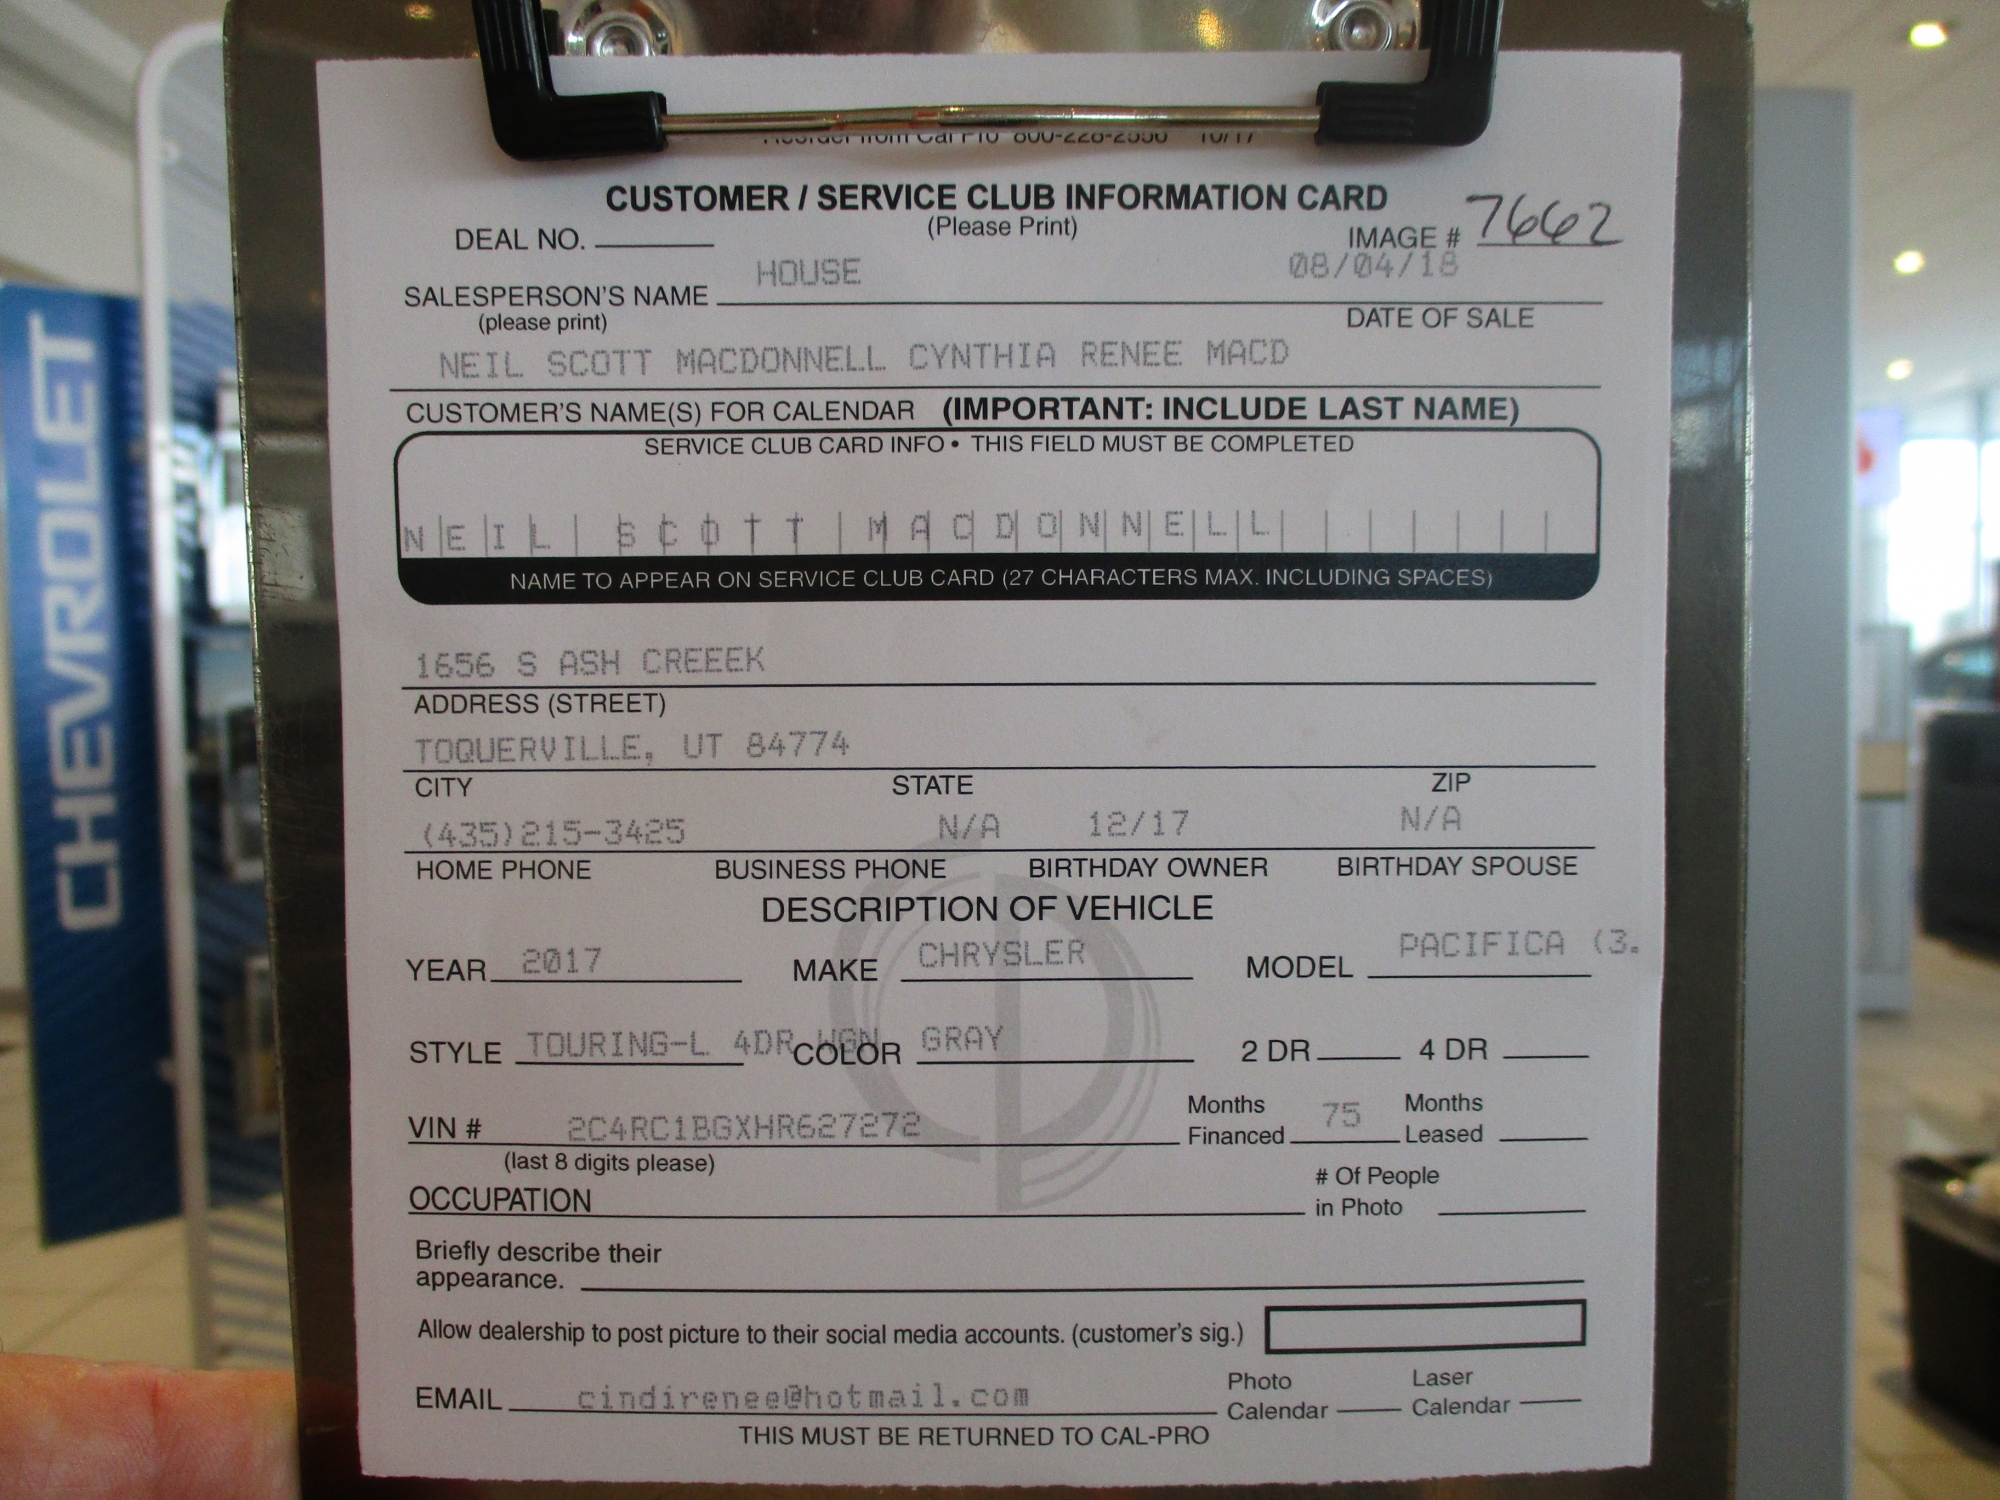 Reorder from Cal Pro 800-228-2556 10/17
CUSTOMER / SERVICE CLUB INFORMATION CARD
(Please Print)
DEAL NO. IMAGE # 7662
HOUSE 08/04/18
SALESPERSON'S NAME
(please print) DATE OF SALE
NEIL SCOTT MACDONNELL CYNTHIA RENEE MACD
CUSTOMER'S NAME(S) FOR CALENDAR (IMPORTANT: INCLUDE LAST NAME)
SERVICE CLUB CARD INFO • THIS FIELD MUST BE COMPLETED
NEIL SCOTT MACDONNELL
NAME TO APPEAR ON SERVICE CLUB CARD (27 CHARACTERS MAX. INCLUDING SPACES)
1656 S ASH CREEEK
ADDRESS (STREET)
TOQUERVILLE, UT 84774
CITY STATE ZIP
(435)215-3425 N/A 12/17 N/A
HOME PHONE BUSINESS PHONE BIRTHDAY OWNER BIRTHDAY SPOUSE
DESCRIPTION OF VEHICLE
YEAR 2017 MAKE CHRYSLER MODEL PACIFICA (3.
STYLE TOURING-L 4DR WGN COLOR GRAY 2 DR 4 DR
VIN # 2C4RC1BGXHR627272 Months Financed 75 Months Leased
(last 8 digits please)
OCCUPATION # Of People in Photo
Briefly describe their
appearance.
Allow dealership to post picture to their social media accounts. (customer's sig.)
EMAIL cindirenee@hotmail.com Photo Calendar Laser Calendar
THIS MUST BE RETURNED TO CAL-PRO
CHEVROLET